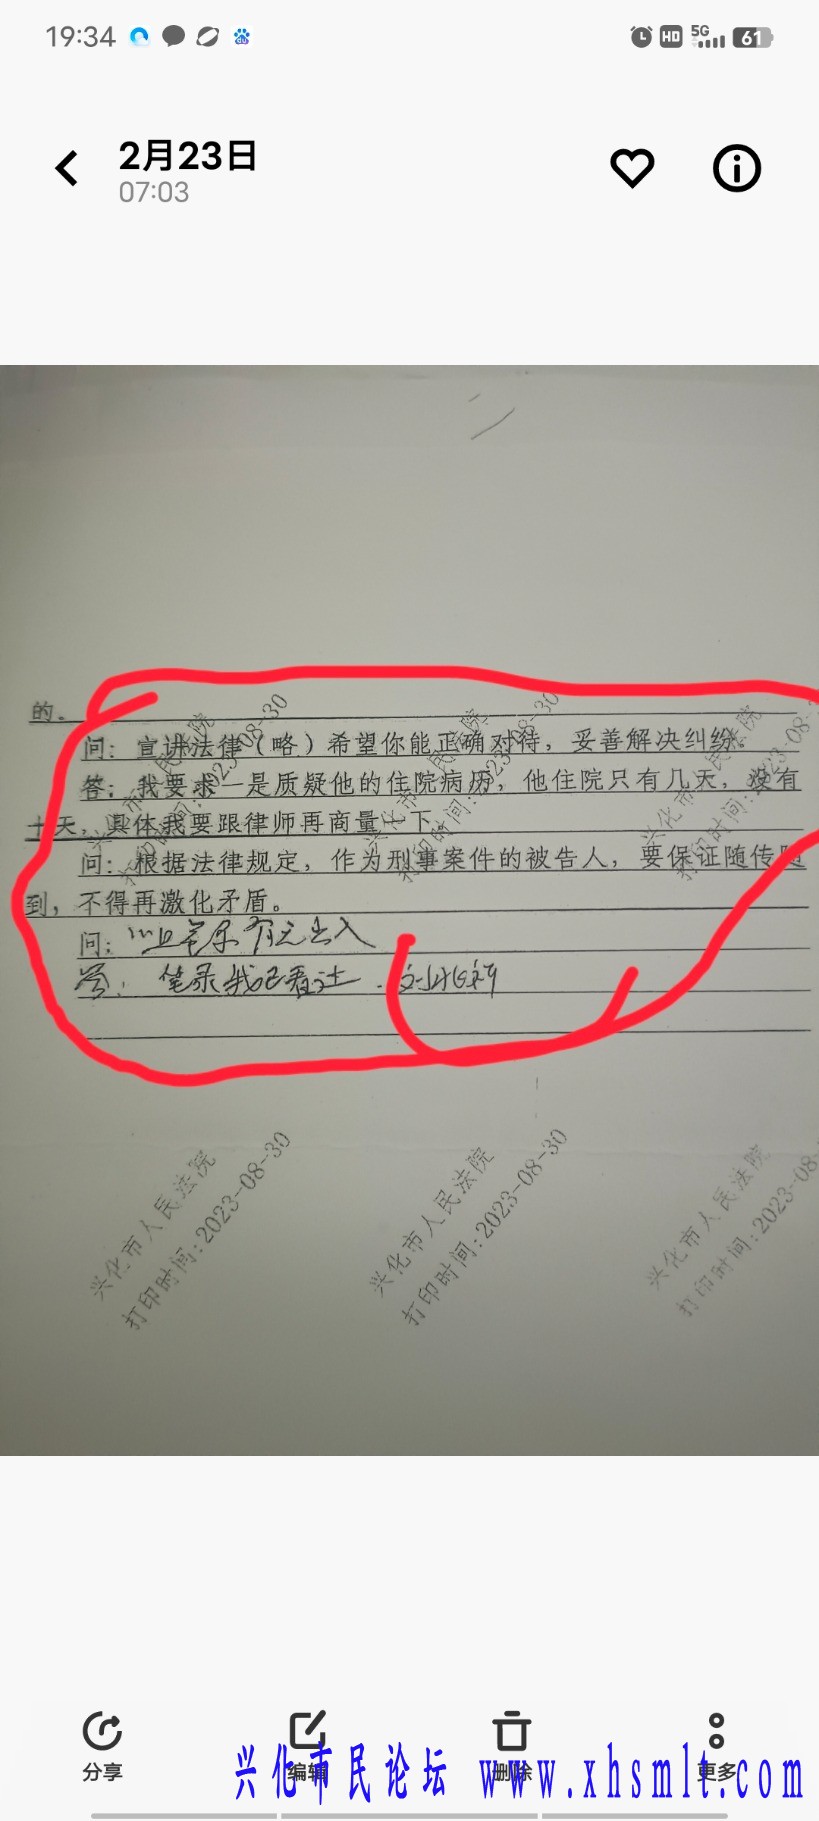 19:34 HD 5G 61
2月23日
07:03
的。
问：宣讲法律（略）希望你能正确对待，妥善解决纠纷。
答：我要求一是质疑他的住院病历，他住院只有几天，没有
十天，具体我要跟律师再商量一下
问：根据法律规定，作为刑事案件的被告人，要保证随传随
到，不得再激化矛盾。
问：以上笔录有无出入
答：笔录我已看过.
兴化市人民法院
打印时间:2023-08-30
兴化市人民法院
打印时间:2023-08-30
兴化市人民法院
打印时间:2023-08-30
兴化市人民法院
打印时间:2023-08-30
兴化市人民法院
打印时间:2023-08-30
兴化市人民法院
打印时间:2023-08-
分享 编辑 删除 更多
兴化市民论坛 www.xhsmlt.com